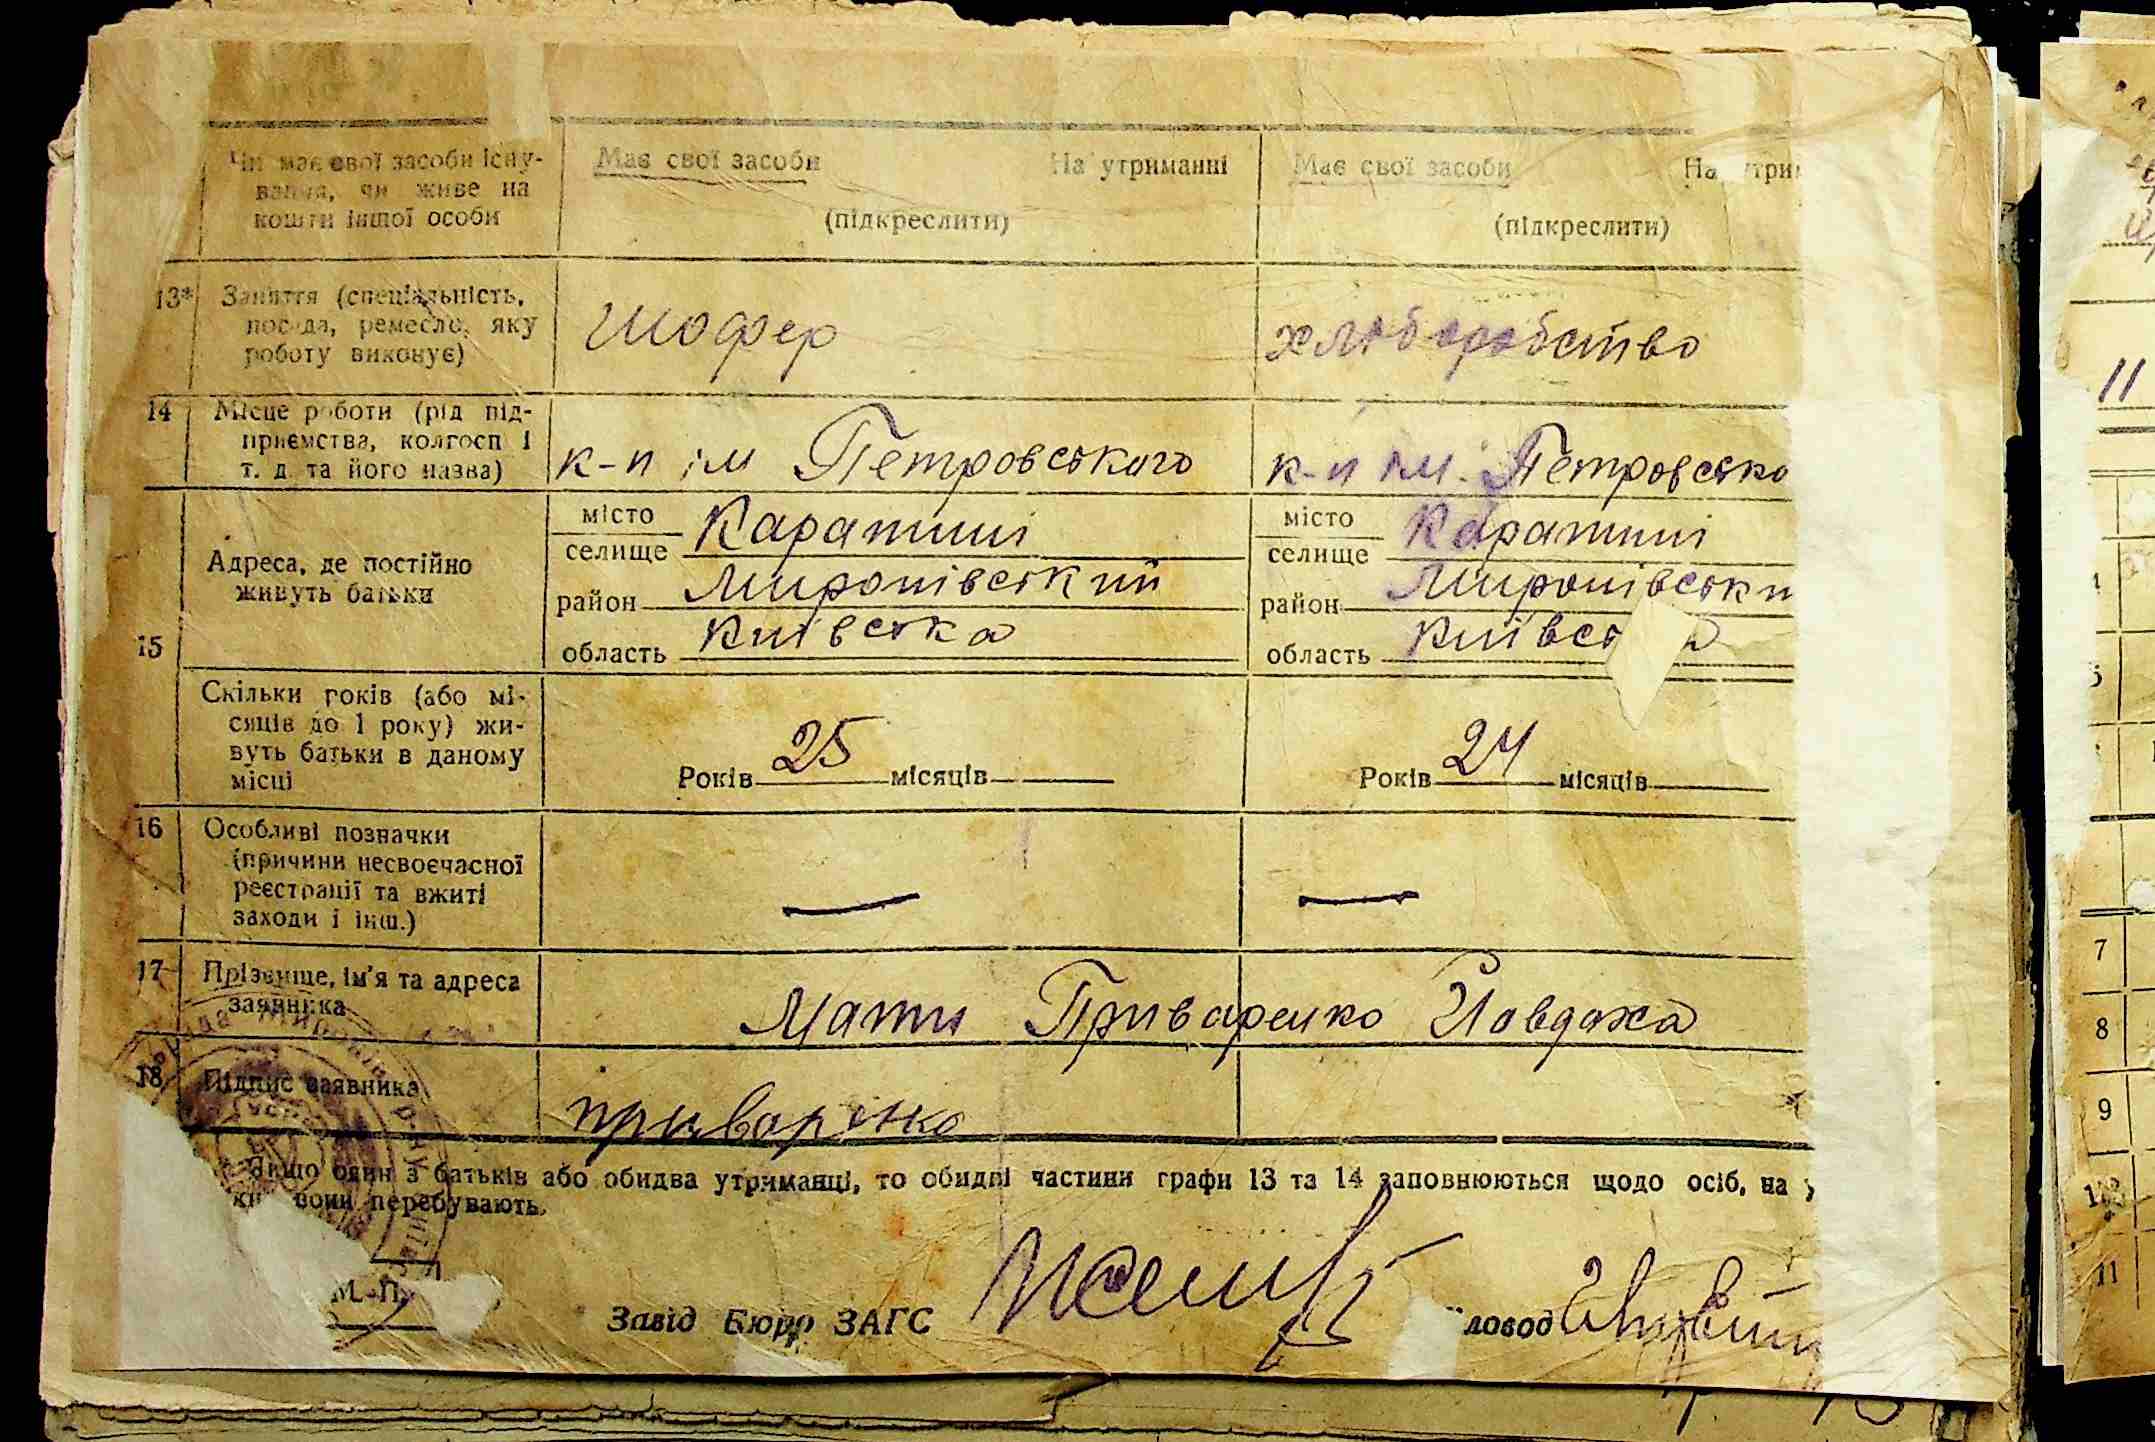 Чи має свої засоби існу-
вання, чи живе на
кошти іншої особи
Має свої засоби На утриманні
(підкреслити)
Має свої засоби На утри
(підкреслити)
13* Заняття (спеціальність,
посада, ремесло, яку
роботу виконує)
шофер
хліборобство
14 Місце роботи (рід під-
приємства, колгосп і
т. д. та його назва)
к-п ім Петровського
к-п ім. Петровсько
15 Адреса, де постійно
живуть батьки
місто
селище Карапиші
район Миронівський
область Київська
місто
селище Карапиші
район Миронівськи
область Київс
Скільки років (або мі-
сяців до 1 року) жи-
вуть батьки в даному
місці
Років 25 місяців
Років 24 місяців
16 Особливі позначки
(причини несвоєчасної
реєстрації та вжиті
заходи і інш.)
—
—
17 Прізвище, ім'я та адреса
заявника
Мати Приваренко Йовдоха
18 Підпис заявника
приваренко
Якщо один з батьків або обидва утриманці, то обидві частини графи 13 та 14 заповнюються щодо осіб, на у
вони перебувають.
М. П.
Завід Бюро ЗАГС
ловод
11
7
8
9
11